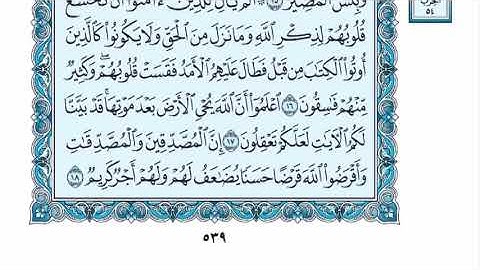 وَبِئْسَ ٱلْمَصِيرُ ١٥ أَلَمْ يَأْنِ لِلَّذِينَ ءَامَنُوٓا۟ أَن تَخْشَعَ
قُلُوبُهُمْ لِذِكْرِ ٱللَّهِ وَمَا نَزَلَ مِنَ ٱلْحَقِّ وَلَا يَكُونُوا۟ كَٱلَّذِينَ
أُوتُوا۟ ٱلْكِتَـٰبَ مِن قَبْلُ فَطَالَ عَلَيْهِمُ ٱلْأَمَدُ فَقَسَتْ قُلُوبُهُمْ ۖ وَكَثِيرٌ
مِّنْهُمْ فَـٰسِقُونَ ١٦ ٱعْلَمُوٓا۟ أَنَّ ٱللَّهَ يُحْىِ ٱلْأَرْضَ بَعْدَ مَوْتِهَا ۚ قَدْ بَيَّنَّا
لَكُمُ ٱلْـَٔايَـٰتِ لَعَلَّكُمْ تَعْقِلُونَ ١٧ إِنَّ ٱلْمُصَّدِّقِينَ وَٱلْمُصَّدِّقَـٰتِ
وَأَقْرَضُوا۟ ٱللَّهَ قَرْضًا حَسَنًا يُضَـٰعَفُ لَهُمْ وَلَهُمْ أَجْرٌ كَرِيمٌ ١٨
الحزب
٥٤
٥٣٩